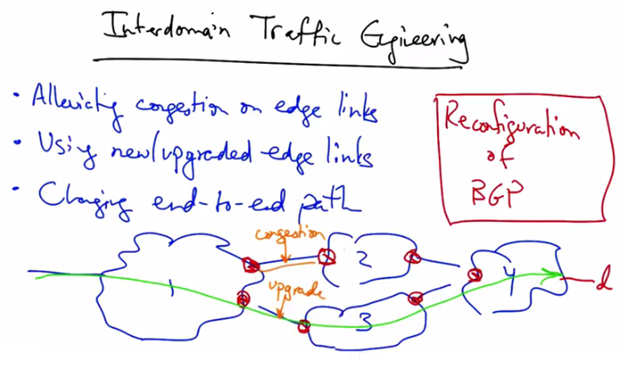 Interdomain Traffic Engineering
• Alleviating congestion on edge links
• Using new/upgraded edge links
• Changing end-to-end path
Reconfiguration
of
BGP
congestion
upgrade
1
2
3
4
d